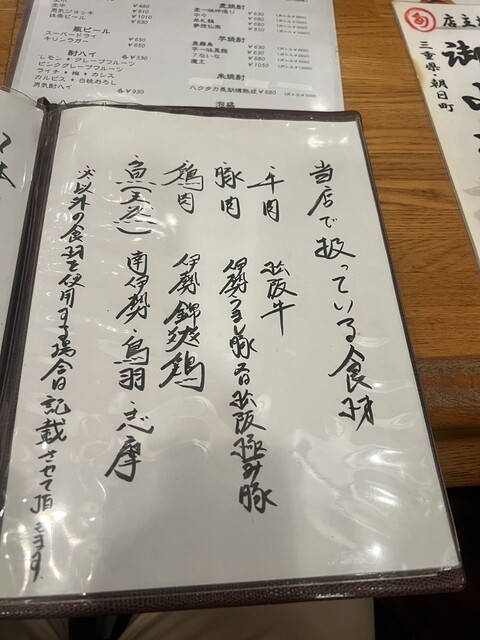 当店で扱っている食材
牛肉 松阪牛
豚肉 伊勢うまし豚 又は 松阪極み豚
鶏肉 伊勢 錦爽鶏
魚(天然) 南伊勢・鳥羽・志摩
※以外の食材を使用する場合は記載させて頂きます。
生中 ¥480
男気ジョッキ ¥1010
抹茶ビール ¥630
瓶ビール
スーパードライ ¥650
キリンラガー ¥650
酎ハイ 各¥530
レモン・グレープフルーツ
ピンクグレープフルーツ
ライチ・梅・カシス
カルピス・白桃おろし
男気酎ハイ 各¥930
麦焼酎
芋焼酎
黒霧島
魔王 ¥1050
米焼酎
ハクタカ長期樽熟成 ¥680
泡盛
旬
店主
三重県・朝日町